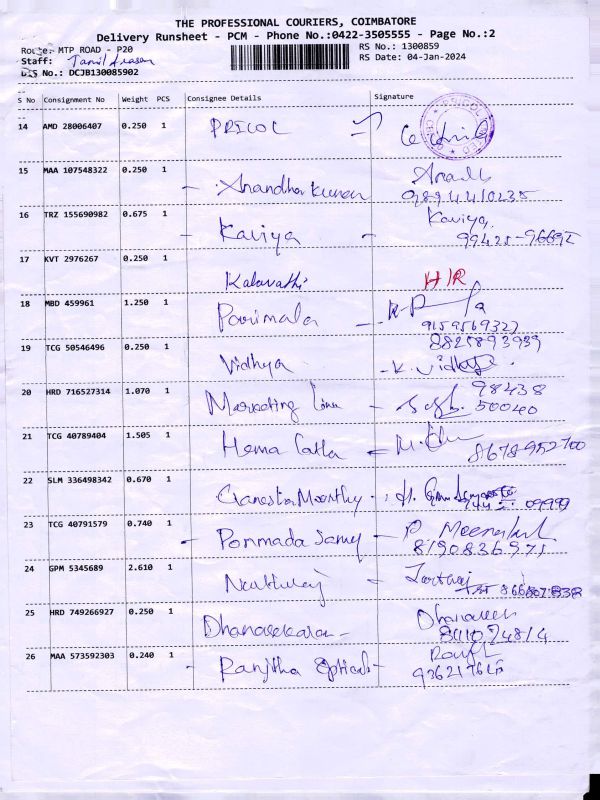 THE PROFESSIONAL COURIERS, COIMBATORE
Delivery Runsheet - PCM - Phone No.:0422-3505555 - Page No.:2
Route: MTP ROAD - P20 RS No.: 1300859
Staff: Tamil Arasan RS Date: 04-Jan-2024
DRS No.: DCJB130085902
S No Consignment No Weight PCS Consignee Details Signature
14 AMD 28006407 0.250 1 PRICOL
15 MAA 107548322 0.250 1 - Anandha Kumar
9894410235
16 TRZ 155690982 0.675 1 - Kaviya - Kaviya
99425-96692
17 KVT 2976267 0.250 1 Kalavathi H/R
18 MBD 459961 1.250 1 Parimala
9159569327
19 TCG 50546496 0.250 1 Vidhya 8825893939
- K. Vidhya
20 HRD 716527314 1.070 1 Marketing - 98438
50040
21 TCG 40789404 1.505 1 Hema Latha - 8678952700
22 SLM 336498342 0.670 1 Ganesha Moorthy
23 TCG 40791579 0.740 1 - Ponmada Samy - P Meenakshi
8190836971
24 GPM 5345689 2.610 1
25 HRD 749266927 0.250 1 Dhanasekaran -
26 MAA 573592303 0.240 1 - Ranjitha Opticals -